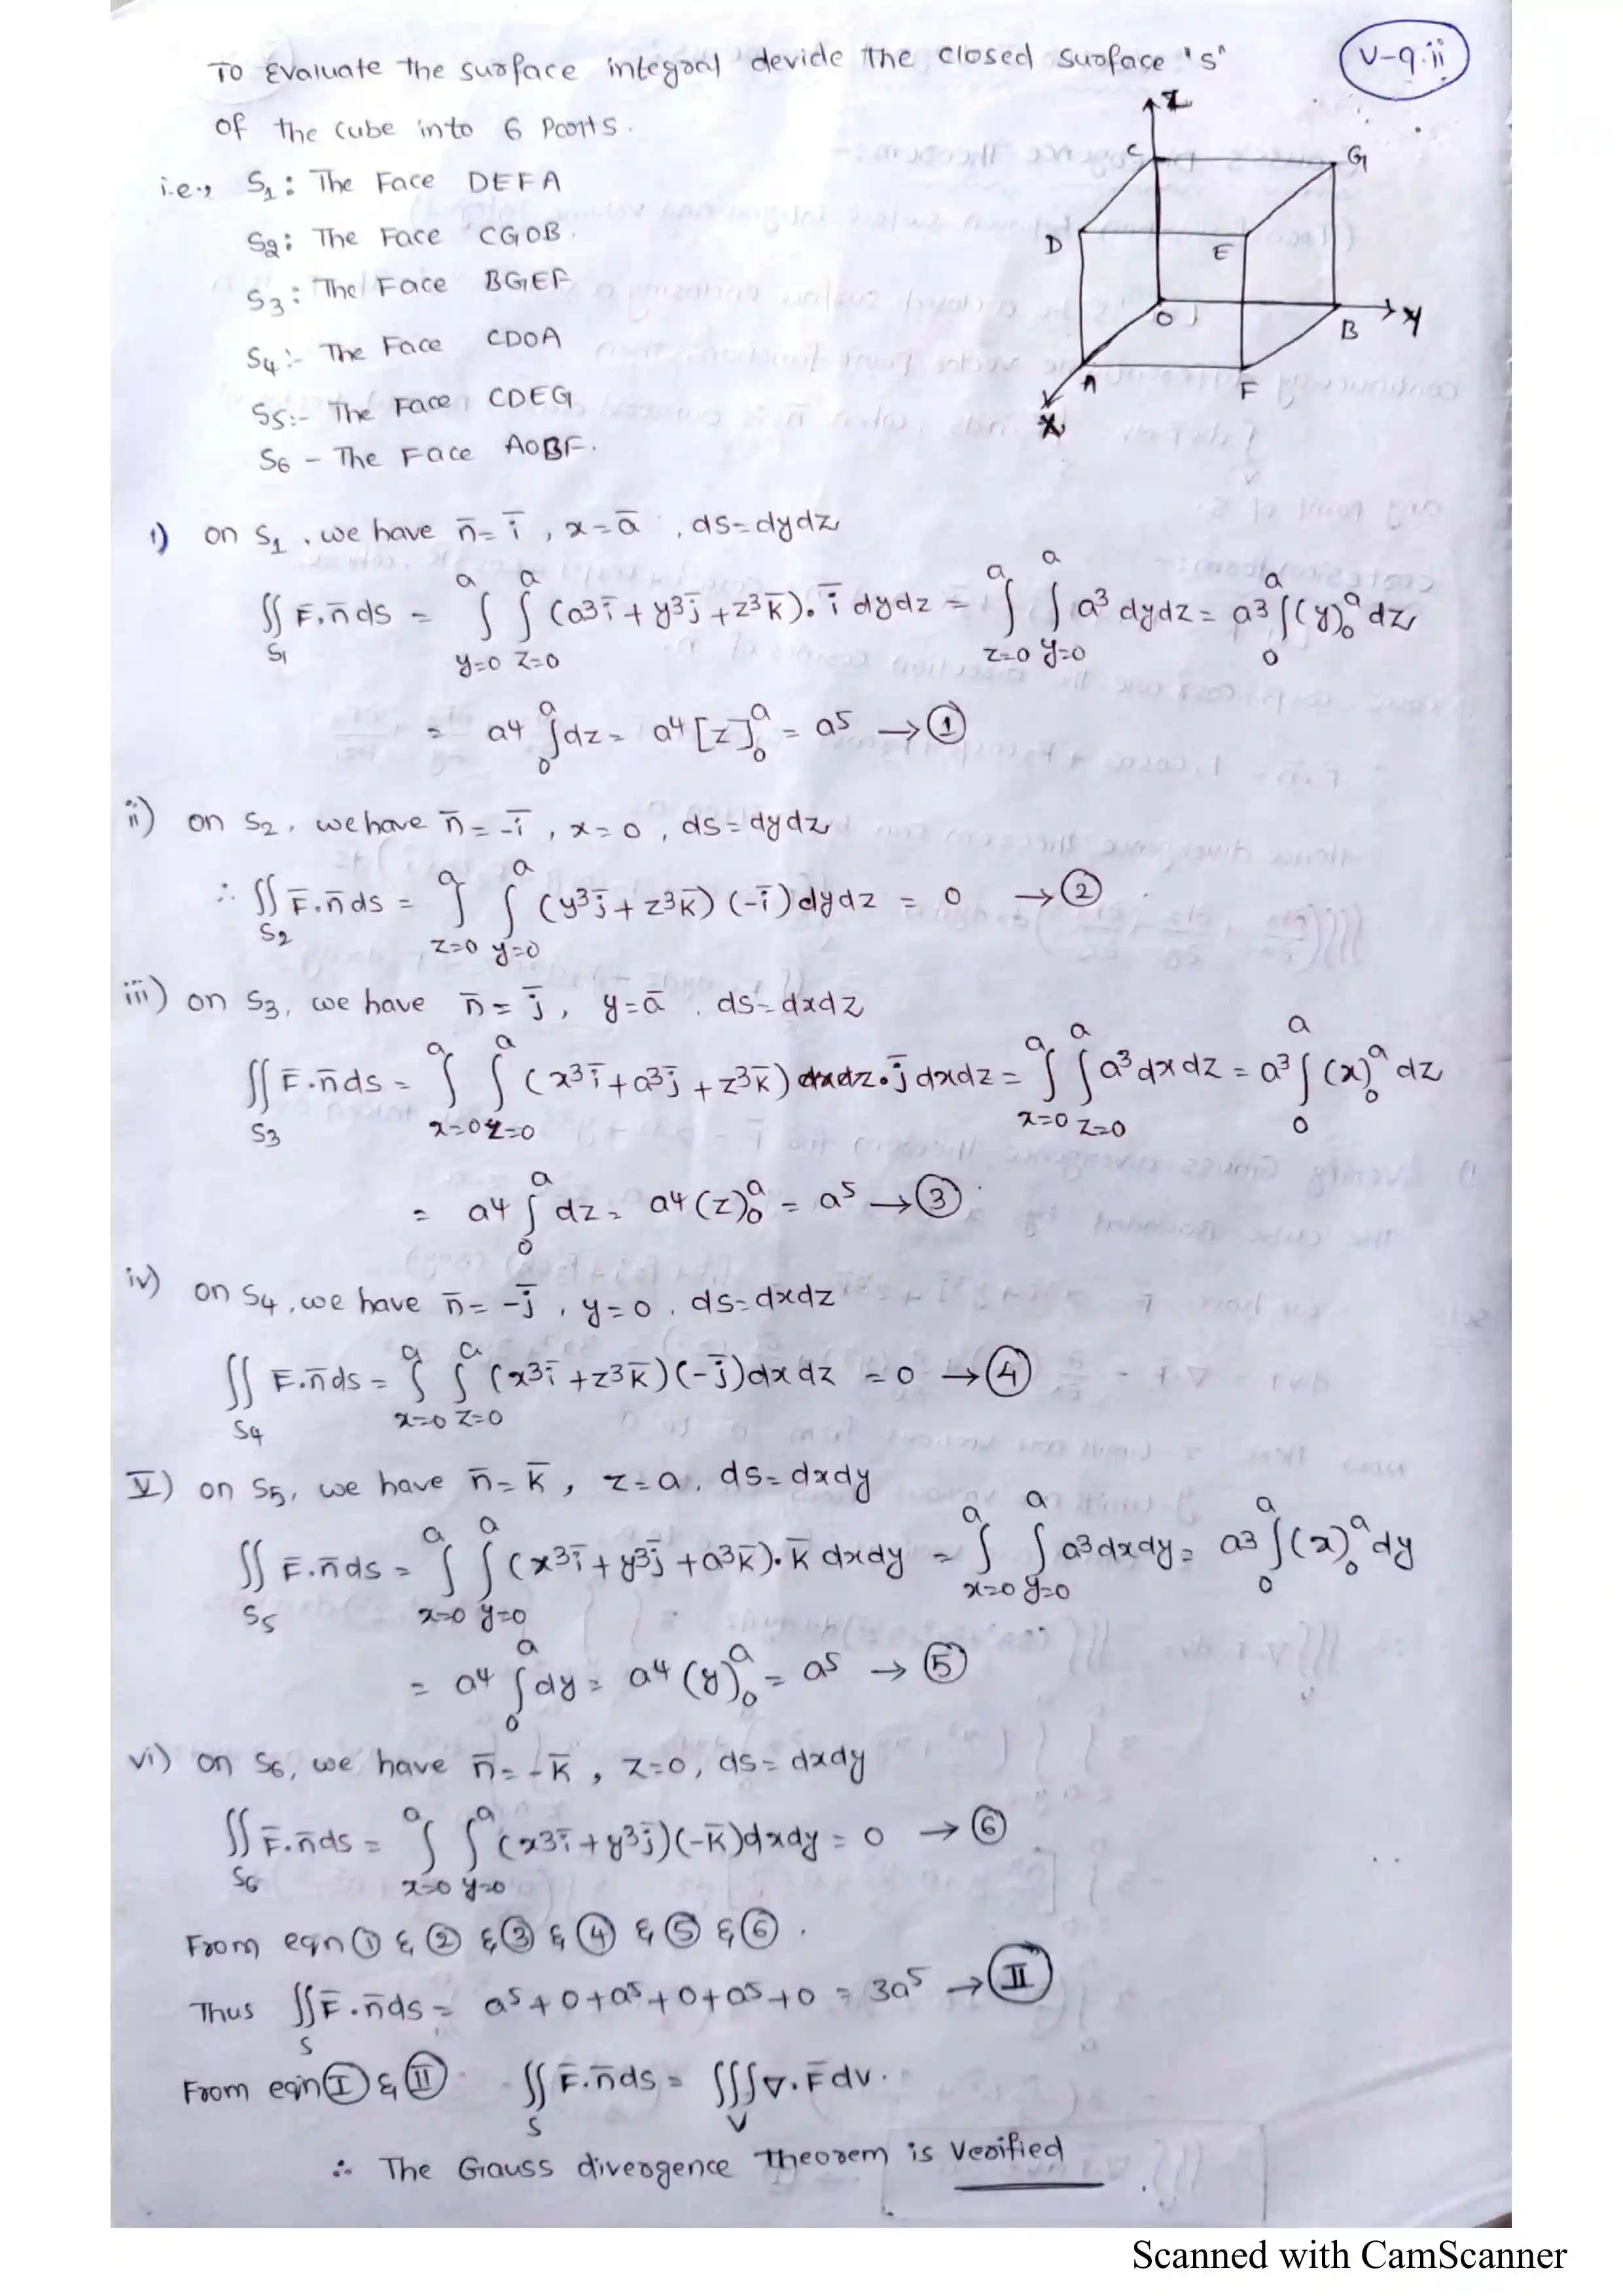 To Evaluate the surface integral devide the closed surface 's'
V-9.ii
of the cube into 6 Parts.
i.e., S₁: The Face DEFA
S₂: The Face CGOB.
S₃: The Face BGEF
S₄:- The Face CDOA
S₅:- The Face CDEG
S₆ - The Face AOBF.
Z
C
G
D
E
O
B
Y
A
F
X
i) on S₁, we have n̄ = ī, x = ā, ds = dydz
∬_S₁ F.n̄ ds = ∫_{y=0}^{a} ∫_{z=0}^{a} (a³ī + y³j̄ + z³k̄). ī dydz = ∫_{z=0}^{a} ∫_{y=0}^{a} a³ dydz = a³ ∫_0^a (y)_0^a dz
= a⁴ ∫_0^a dz = a⁴ [z]_0^a = a⁵ → ①
ii) on S₂, we have n̄ = -ī, x = 0, ds = dydz
∴ ∬_S₂ F̄.n̄ ds = ∫_{z=0}^{a} ∫_{y=0}^{a} (y³j̄ + z³k̄) (-ī) dydz = 0 → ②
iii) on S₃, we have n̄ = j̄, y = ā. ds = dxdz
∬_S₃ F̄.n̄ ds = ∫_{x=0}^{a} ∫_{z=0}^{a} (x³ī + a³j̄ + z³k̄) dxdz . j̄ dxdz = ∫_{x=0}^{a} ∫_{z=0}^{a} a³ dxdz = a³ ∫_0^a (x)_0^a dz
= a⁴ ∫_0^a dz = a⁴ (z)_0^a = a⁵ → ③
iv) on S₄, we have n̄ = -j̄, y = 0. ds = dxdz
∬_S₄ F.n̄ ds = ∫_{x=0}^{a} ∫_{z=0}^{a} (x³ī + z³k̄) (-j̄) dxdz = 0 → ④
V) on S₅, we have n̄ = k̄, z = a, ds = dxdy
∬_S₅ F.n̄ ds = ∫_{x=0}^{a} ∫_{y=0}^{a} (x³ī + y³j̄ + a³k̄). k̄ dxdy = ∫_{x=0}^{a} ∫_{y=0}^{a} a³ dxdy = a³ ∫_0^a (x)_0^a dy
= a⁴ ∫_0^a dy = a⁴ (y)_0^a = a⁵ → ⑤
vi) on S₆, we have n̄ = -k̄, z = 0, ds = dxdy
∬_S₆ F.n̄ ds = ∫_{x=0}^{a} ∫_{y=0}^{a} (x³ī + y³j̄) (-k̄) dxdy = 0 → ⑥
From eqn ① & ② & ③ & ④ & ⑤ & ⑥.
Thus ∬_S F̄.n̄ ds = a⁵ + 0 + a⁵ + 0 + a⁵ + 0 = 3a⁵ → Ⅱ
From eqn Ⅰ & Ⅱ ∬_S F̄.n̄ ds = ∭_V ∇.F̄ dv.
∴ The Gauss divergence Theorem is Verified
Scanned with CamScanner